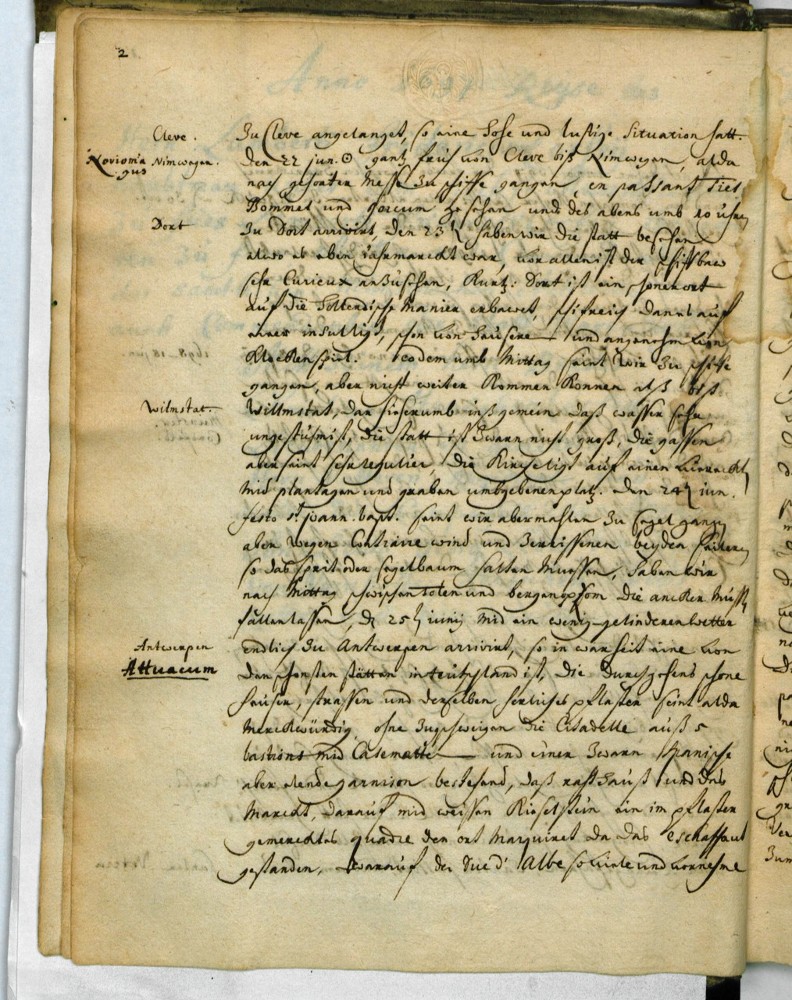 2
Cleve.
Noviomagus Nimwegen.
Dort
Wilmstat.
Antwerpen
Attuacum
Zu Cleve angelanget, so eine hohe und lustige Situation hatt.
Den 22 jun. ☉ gantz früh von Cleve biß Nimwegen, alda
nach gehörter Messe zu schiffe gangen, en passant Tiel
Bommel und Gorcum besehen und des abends umb 10 uhren
zu Dort arrivirt, den 23 haben wir die statt besehen
alwo es eben Jahrmarckt war, vor allen ist der schiffbaw
sehr Curieux anzusehen, Kurtz: Dort ist ein schöner ort
auf die Hollendische Manier erbawet, schifreich dan es auf
einer insul ligt, schön von häusere und angenehm von
Klockenspiel. eodem umb Mittag seint wir zu schiffe
gangen, aber nicht weiter Kommen Können alß biß
Willmstat, dan hieherumb inßgemein daß wasser sehr
ungestüm ist, die statt ist zwarn nicht groß, die gassen
aber seint sehr regulier, die Kirche ligt auf einen
mid plantagen und graben umbgebenen platz. den 24 jun.
festo s. joann. bapt. seint wir abermahlen zu segel gangen
aber wegen Contraire wind und zerrissenen beyden
so das sprit oder segelbaum halten Muessen, haben wir
nach Mittag zwischen tolen und bergen op som die ancker
fallen lassen, den 25 junij mid ein wenig gelinderen wetter
endlich zu Antwerpen arrivirt, so in warheit eine von
den schönsten stätten in teutschland ist, die durchgehens schöne
häuser, strassen und derselben herliches pflaster seint alda
Merckwürdig, ohne zugeschweigen die Citadelle auß 5
bastions mid Casematte und einer zwarn spanische
aber elende garnison bestehend, daß rathhauß und der
Marckt, darauf mid weissen Kieselstein ein im pflaster
gemercktes quadre den ort Marquiret da das eschaffaut
gestanden, warauf der Duc d'Albe so viele und vornehme